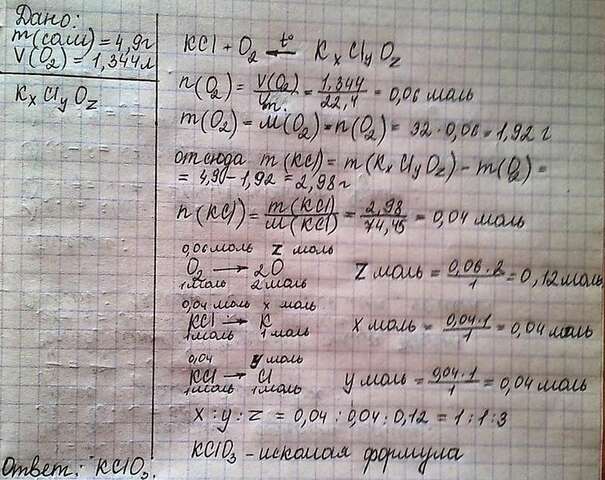 Дано:
m(соли) = 4,9г
V(O₂) = 1,344л
KₓClᵧO_z
KCl + O₂ ←t° KₓClᵧO_z
n(O₂) = V(O₂)/Vm = 1,344/22,4 = 0,06 моль
m(O₂) = M(O₂) * n(O₂) = 32 · 0,06 = 1,92 г
отсюда m(KCl) = m(KₓClᵧO_z) - m(O₂) =
= 4,90 - 1,92 = 2,98 г
n(KCl) = m(KCl)/M(KCl) = 2,98/74,45 = 0,04 моль
0,06 моль z моль
O₂ → 2O z моль = 0,06 · 2/1 = 0,12 моль
1 моль 2 моль
0,04 моль x моль
KCl → K x моль = 0,04 · 1/1 = 0,04 моль
1 моль 1 моль
0,04 y моль
KCl → Cl y моль = 0,04 · 1/1 = 0,04 моль
1 моль 1 моль
x : y : z = 0,04 : 0,04 : 0,12 = 1 : 1 : 3
KClO₃ - искомая формула
Ответ: KClO₃.